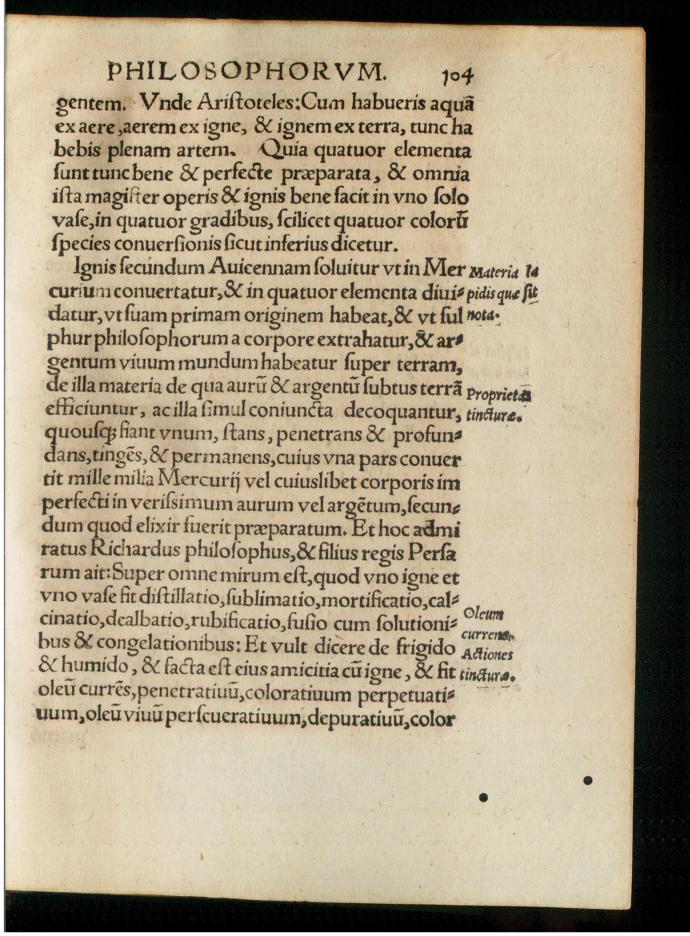 PHILOSOPHORVM. 104
gentem. Vnde Ariſtoteles: Cum habueris aquā
ex aere, aerem ex igne, & ignem ex terra, tunc ha
bebis plenam artem. Quia quatuor elementa
ſunt tunc bene & perfecte præparata, & omnia
iſta magiſter operis & ignis bene facit in vno ſolo
vaſe, in quatuor gradibus, ſcilicet quatuor colorū
ſpecies conuerſionis ſicut inferius dicetur.
Ignis ſecundum Auicennam ſoluitur vt in Mer
curium conuertatur, & in quatuor elementa diui⸗
datur, vt ſuam primam originem habeat, & vt ſul
phur philoſophorum a corpore extrahatur, & ar⸗
gentum viuum mundum habeatur ſuper terram,
de illa materia de qua aurū & argentū ſubtus terrā
efficiuntur, ac illa ſimul coniuncta decoquantur,
quouſqꝫ fiant vnum, ſtans, penetrans & profun⸗
dans, tingēs, & permanens, cuius vna pars conuer
tit mille milia Mercurij vel cuiuslibet corporis im
perfecti in veriſsimum aurum vel argētum, ſecun⸗
dum quod elixir fuerit præparatum. Et hoc admi
ratus Richardus philoſophus, & filius regis Perſa
rum ait: Super omne mirum eſt, quod vno igne et
vno vaſe fit diſtillatio, ſublimatio, mortificatio, cal⸗
cinatio, dealbatio, rubificatio, fuſio cum ſolutioni⸗
bus & congelationibus: Et vult dicere de frigido
& humido, & facta eſt eius amicitia cū igne, & fit
oleū currēs, penetratiuū, coloratiuum perpetuati⸗
uum, oleū viuū perſeueratiuum, depuratiuū, color
Materia la
pidis quæ ſit
nota.
Proprietas
tincturæ.
Oleum
currens.
Actiones
tincturæ.